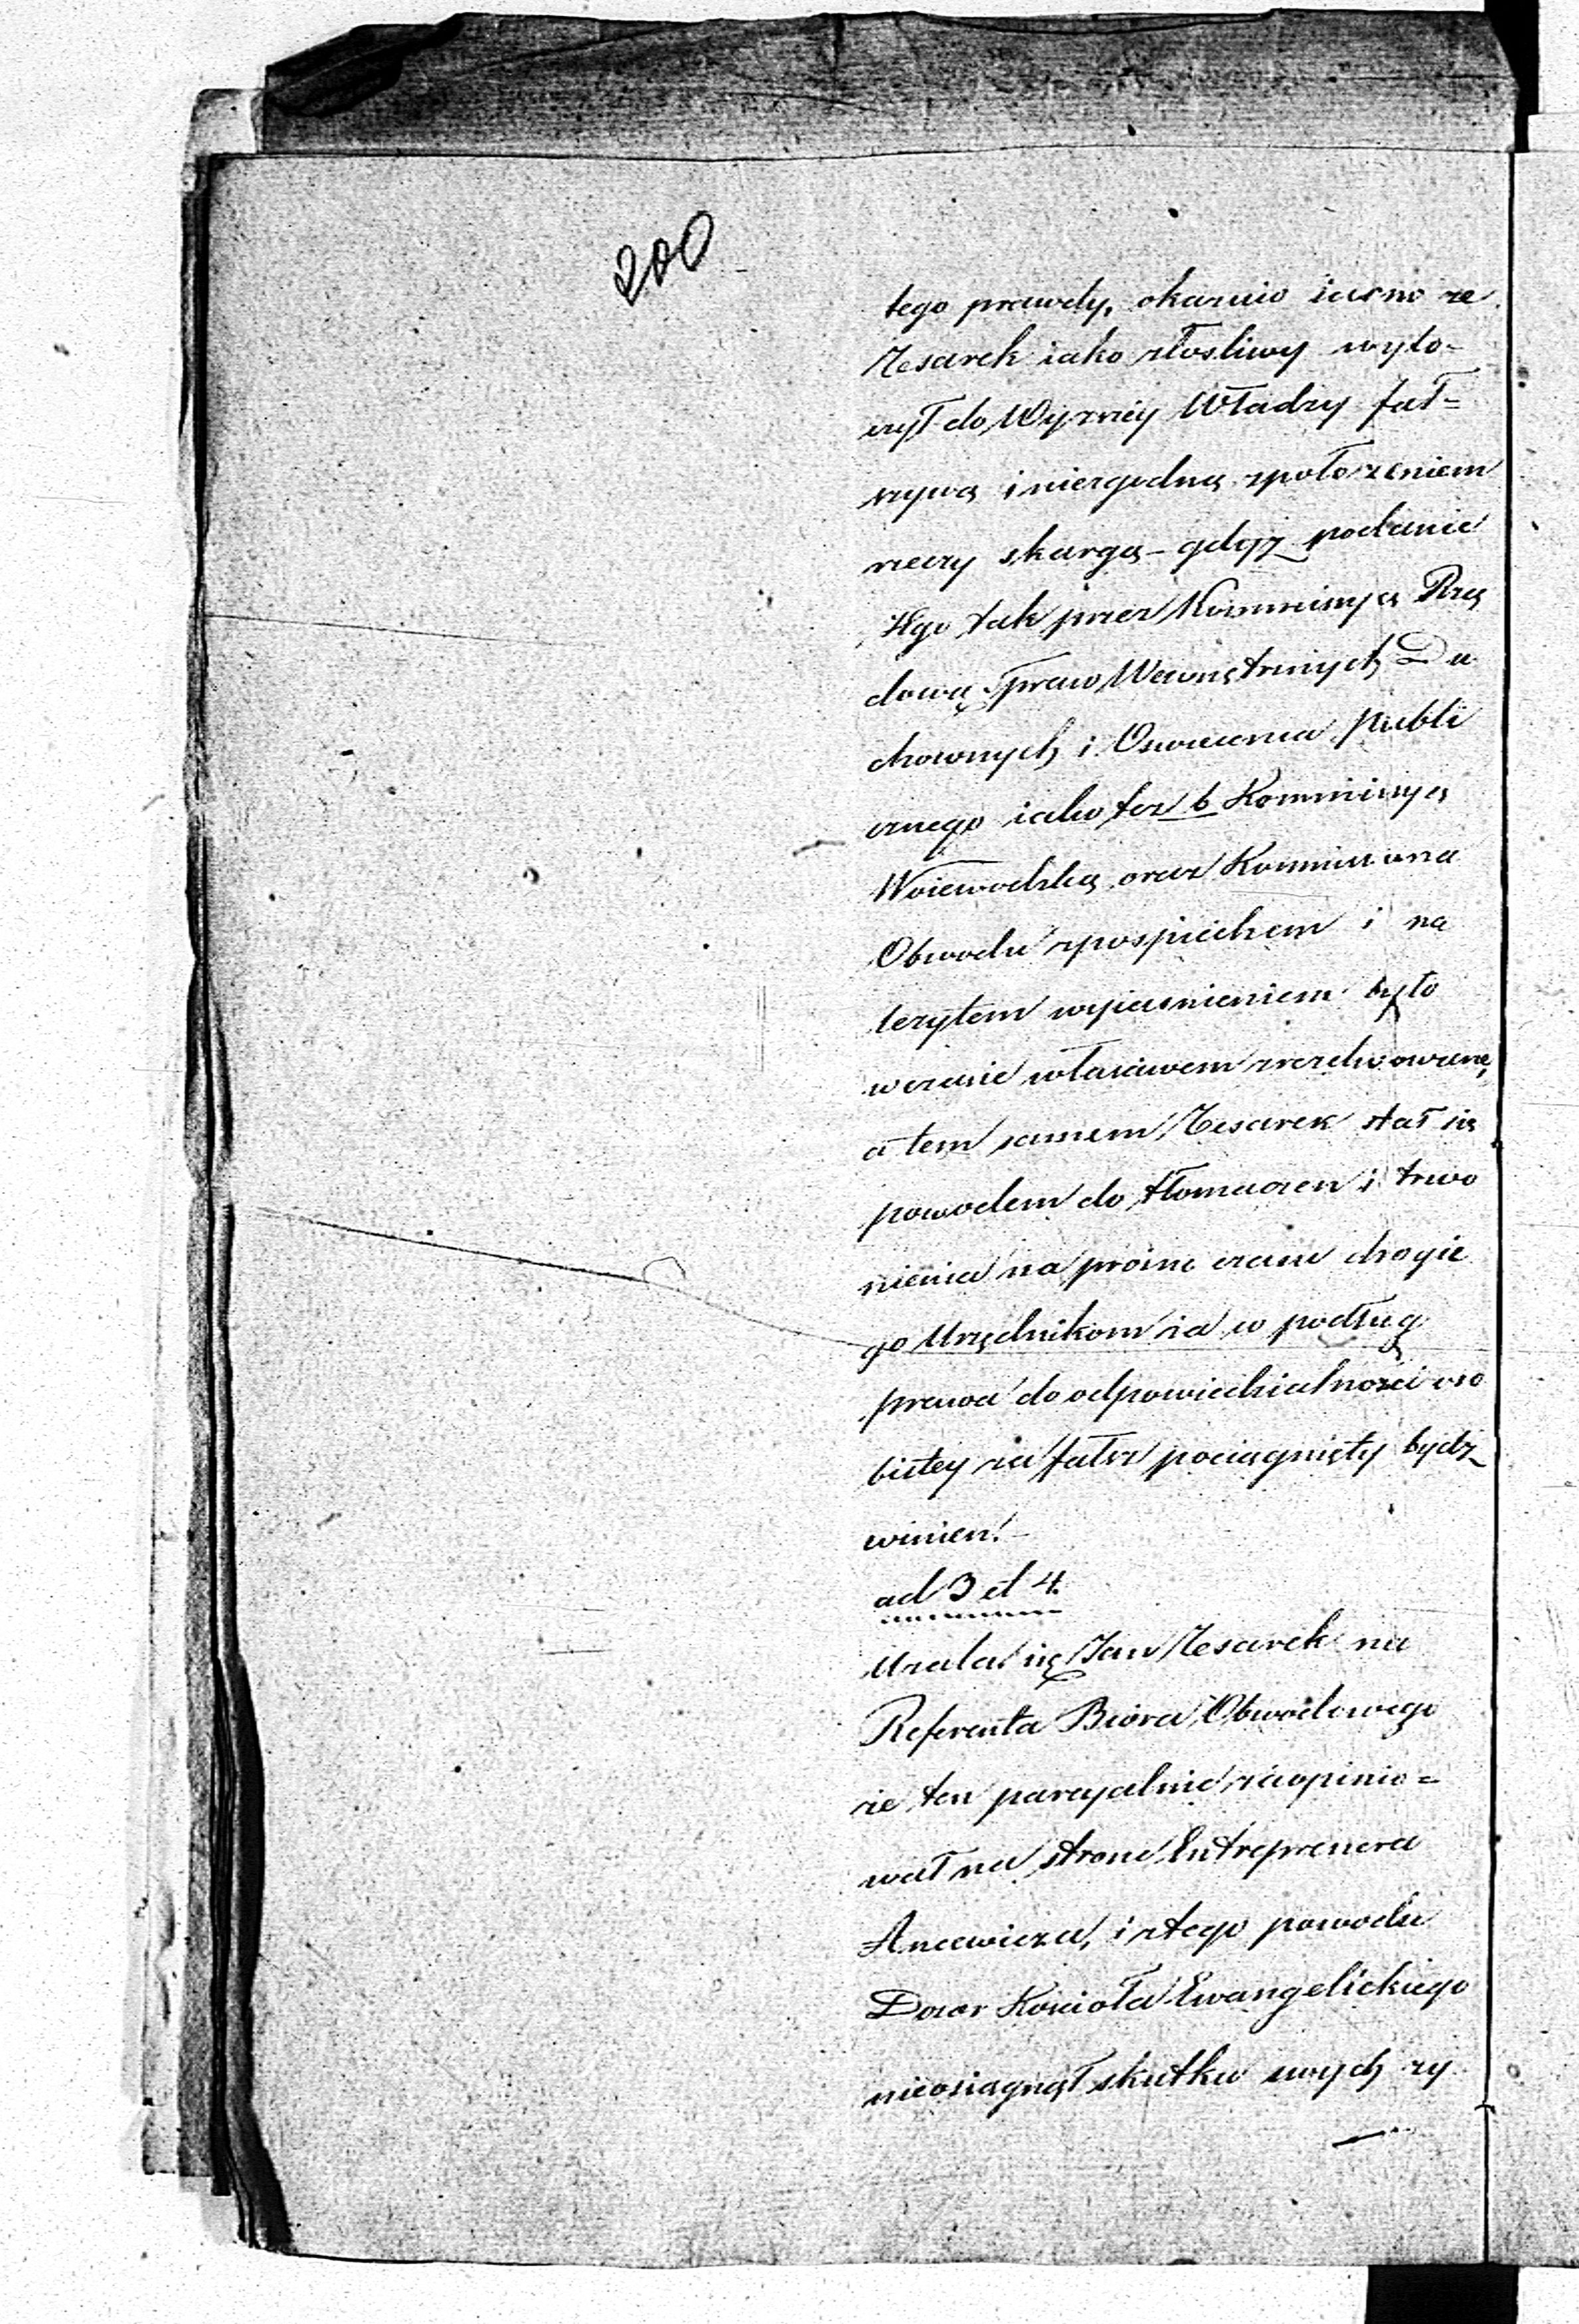 200
tego prawdy, okazuie iasno ze
Zesarek iako złosliwy wyto-
czył do Wyzszey Władzy fał=
szywą i niezgodną zpołozeniem
rzeczy skargę – gdyż podanie
Jego tak przez Kommissyą Rzą
dową Spraw Wewnętrznych Du
chownych i Oswiecenia Publi
cznego iako tez b Kommissyą
Woiewodzką oraz Kommissarza
Obwodu zpospiechem i na
lezytem wyiasnieniem było
wczasie własciwem zrezolwowane,
a tem samem Zesarek stał się
powodem do tłomaczen i trwo
nienia na prozno czasu drogie
go Urzędnikom za co podług
prawa do odpowiedzialności oso
bistey za fałsz pociągnięty bydź
winien. –
ad 3 et 4.
Uzala się Jan Zesarek na
Referenta Biora Obwodowego
ze ten parcyalnie zaopinio=
wał na strone Entreprenera
Ancewicza, i ztego powodu
Dozor Kościoła Ewangelickiego
nieosiągnął skutku swych zy